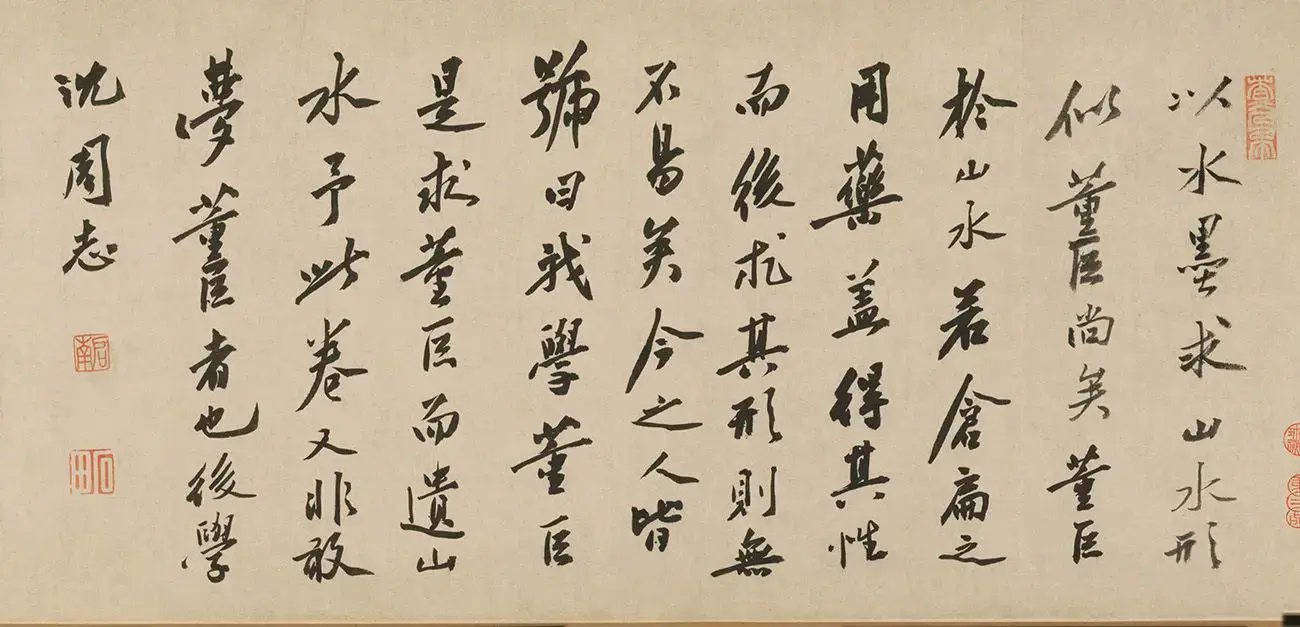 以水墨求山水形
似董巨尚矣董巨
於山水若倉扁之
用藥盖得其性
而後求其形則無
不易矣今之人皆
號曰我學董巨
是求董巨而遺山
水予此卷又非敢
夢董巨者也後學
沈周志
啟南
石田